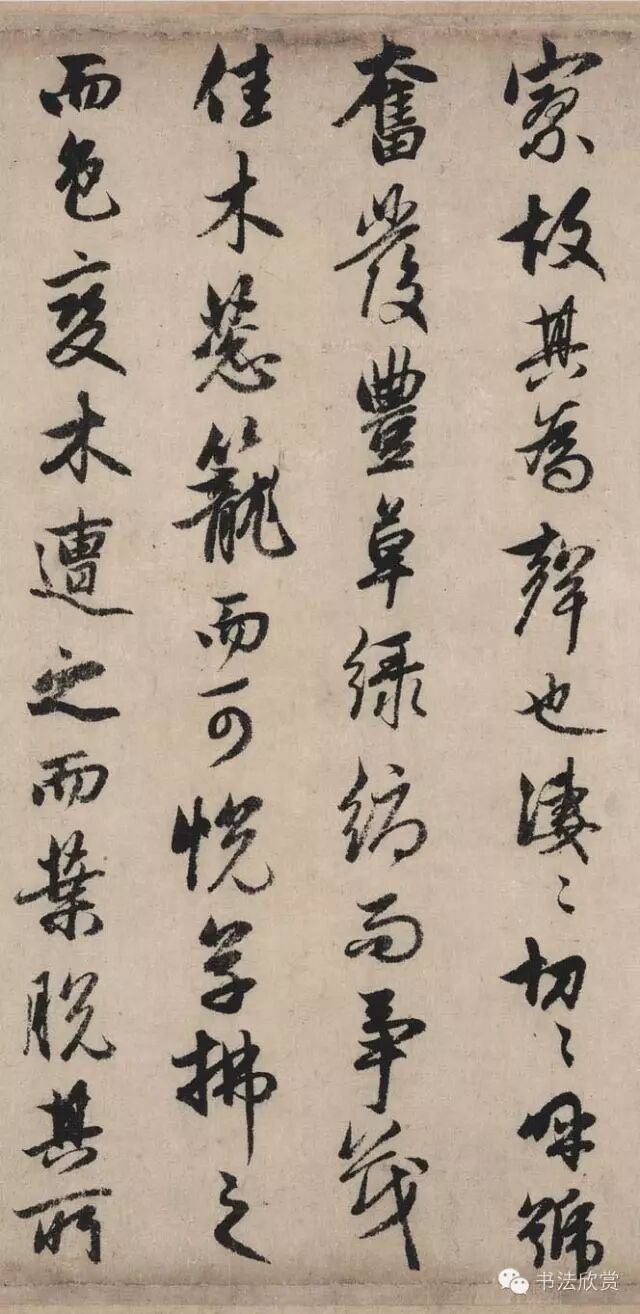 寮故其為聲也淒〻切〻呼號
奮發豐草綠縟而爭茂
佳木葱籠而可悅草拂之
而色變木遭之而葉脫其所
书法欣赏